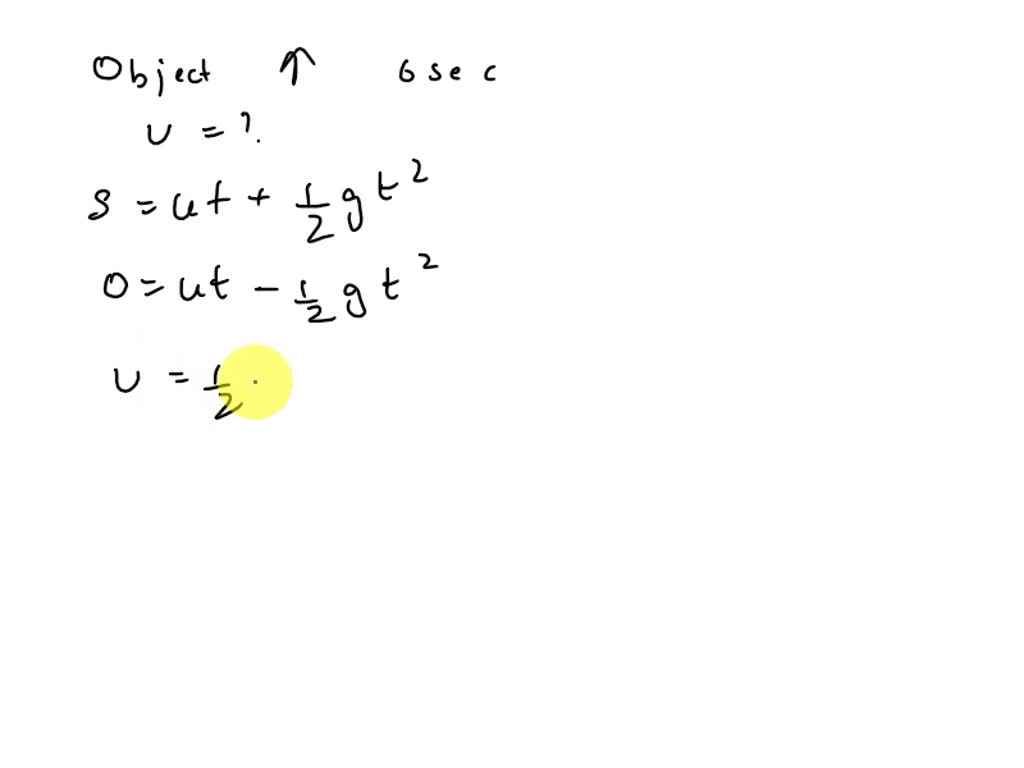 Object ↑ 6 sec
u = ?
S = ut + 1/2 gt²
0 = ut - 1/2 gt²
u = 1/2 ·